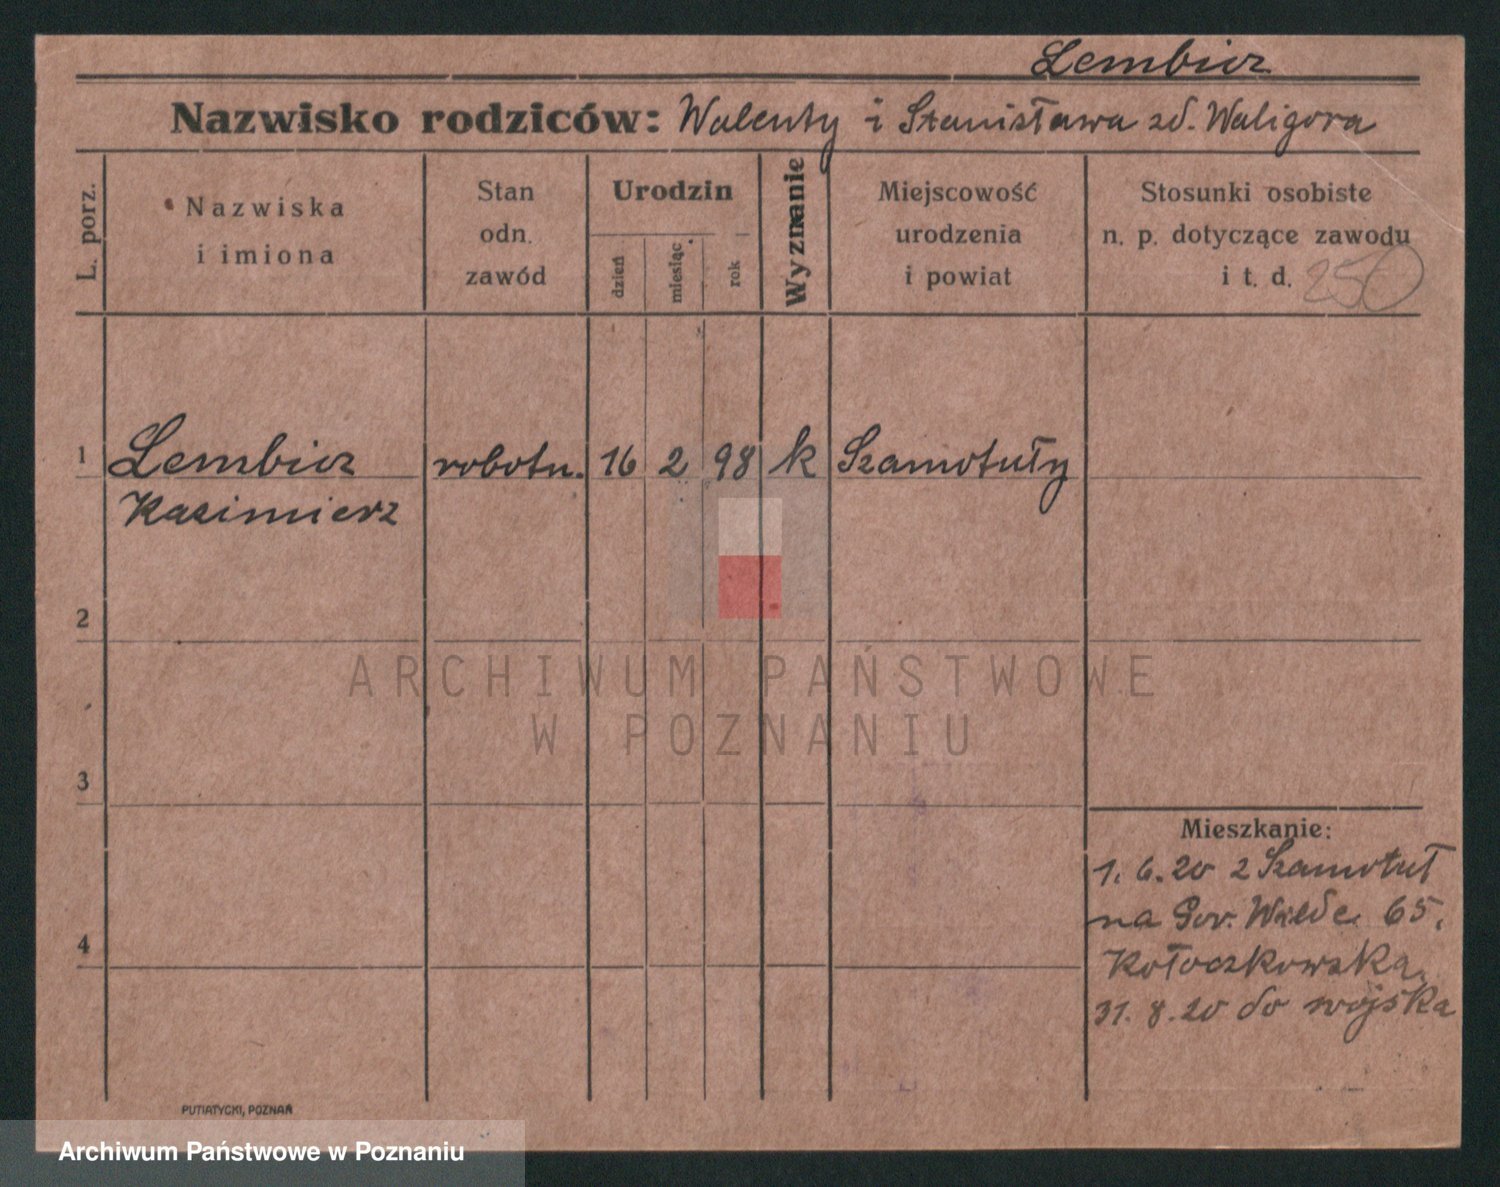 Lembicz
Nazwisko rodziców: Walenty i Stanisława zd. Waligora
L. porz.
Nazwiska
i imiona
Stan
odn.
zawód
Urodzin
dzień
miesiąc
rok
Wyznanie
Miejscowość
urodzenia
i powiat
Stosunki osobiste
n. p. dotyczące zawodu
i t. d.
250
1 Lembicz robotn. 16 2 98 k Szamotuły
Kazimierz
2
3
4
Mieszkanie:
1. 6. 20 z Szamotuł
na Gór. Wilde 65.
Kołoczkowska
31. 8. 20 do wojska
PUTIATYCKI, POZNAŃ
ARCHIWUM PAŃSTWOWE
W POZNANIU
Archiwum Państwowe w Poznaniu